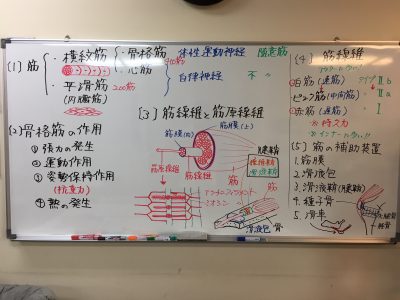 [1] 筋
・横紋筋
・平滑筋
(内臓筋)
・骨格筋
・心筋
体性運動神経 随意筋
自律神経 不 〃
[2] 骨格筋の作用
① 張力の発生
② 運動作用
③ 姿勢保持作用
(抗重力)
④ 熱の発生
[3] 筋線維と筋原線維
筋膜(上)
筋膜(内)
筋原線維
筋線維
筋
筋
アクチンフィラメント
ミオシン 〃
腱鞘
滑液包
骨
[4] 筋線維
白筋(速筋) タイプⅡb
ピンク筋(中間筋) 〃 Ⅱa
赤筋(遅筋) 〃 Ⅰ
※持久力
[5] 筋の補助装置
1. 筋膜
2. 滑液包
3. 滑液鞘(腱鞘)
4. 種子骨
5. 滑車